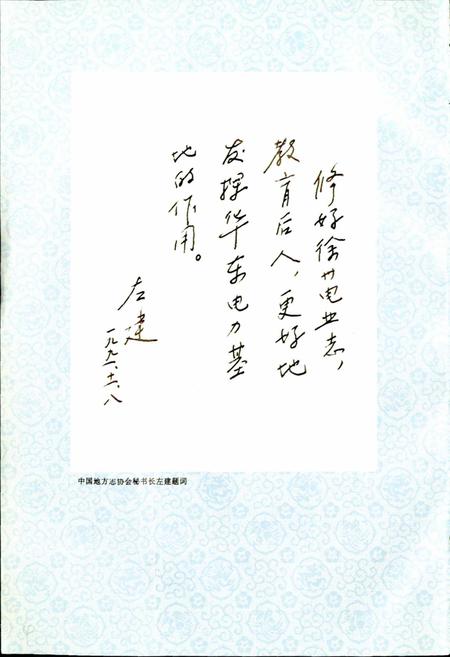 修好徐州电业志，
教育后人，更好地
发挥华东电力基
地的作用。
左建
一九九一、十一、八
中国地方志协会秘书长左建题词